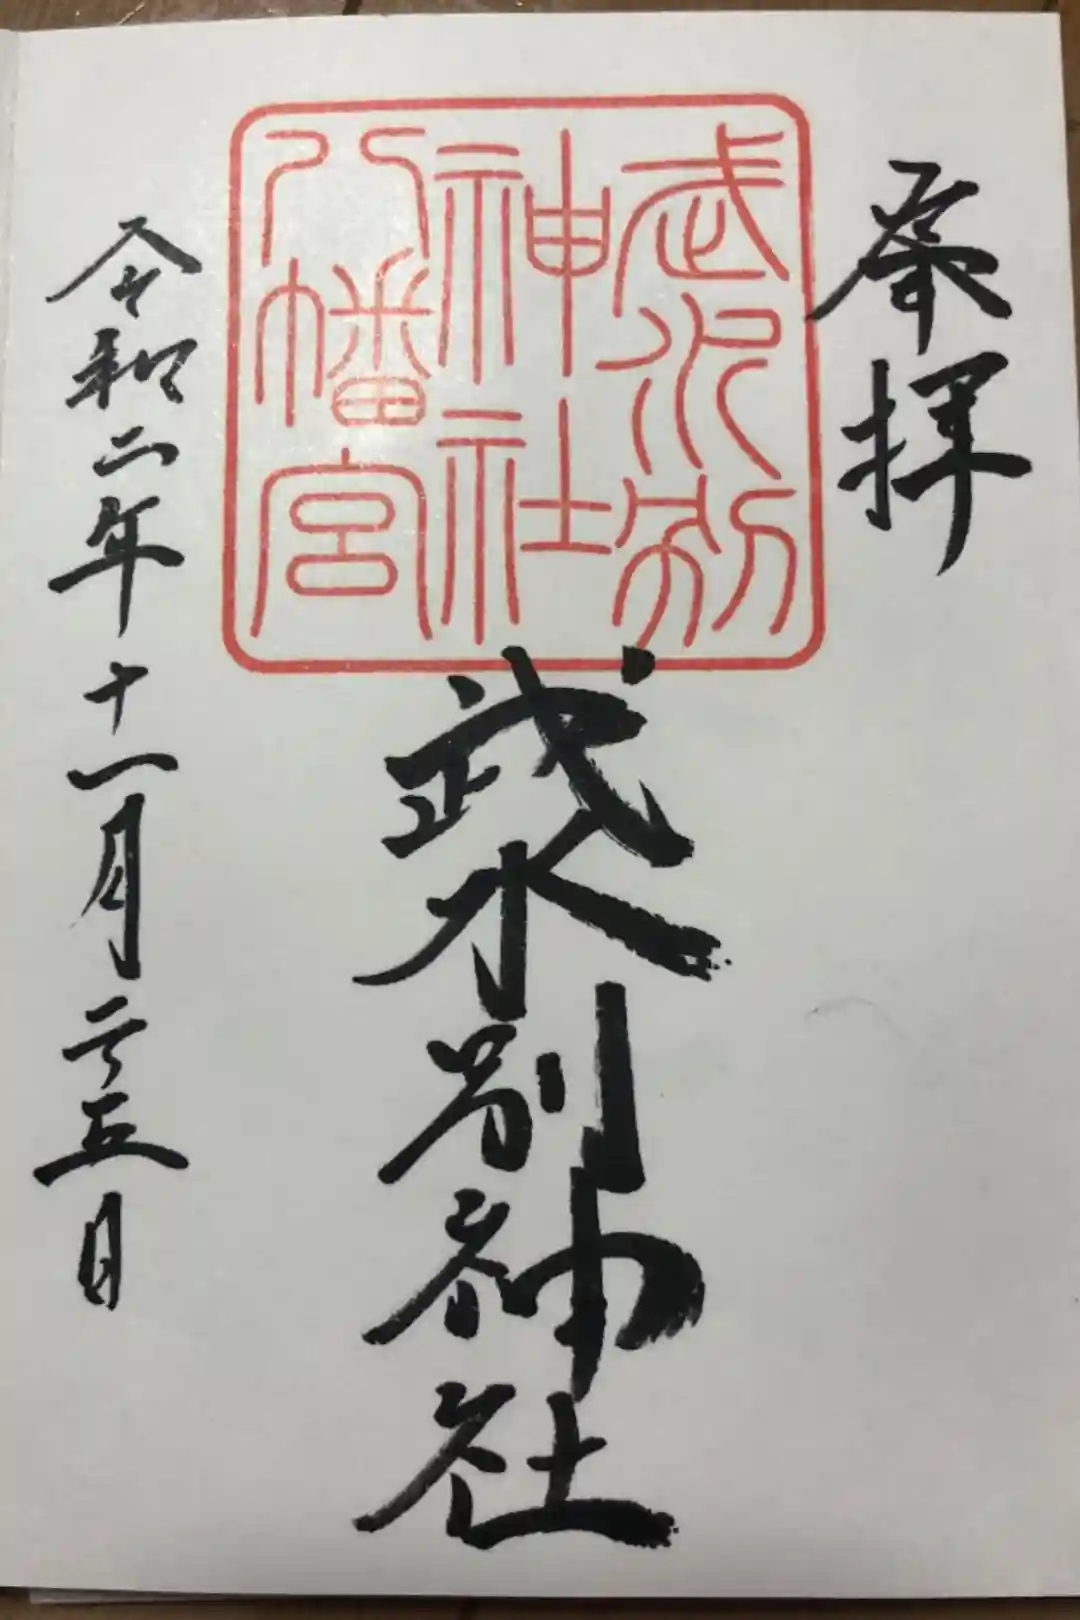 奉拝
武水別
神社
八幡宮
武水別神社
令和二年十一月二十五日